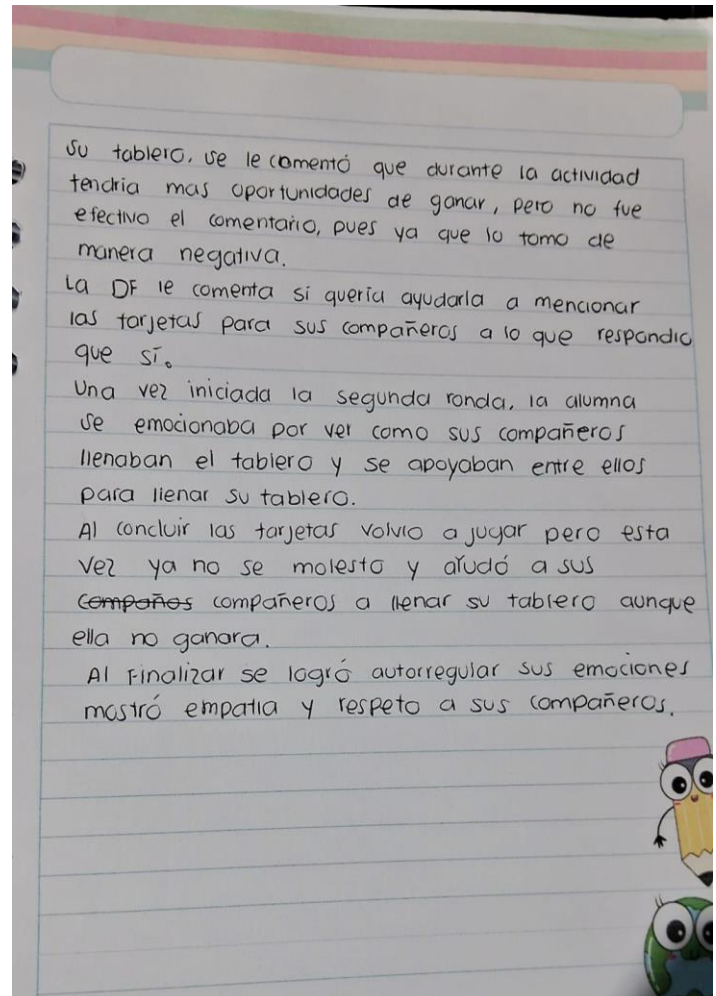 su tablero, se le comentó que durante la actividad
tendria mas oportunidades de ganar, pero no fue
efectivo el comentario, pues ya que lo tomo de
manera negativa.
La DF le comenta si quería ayudarla a mencionar
las tarjetas para sus compañeros a lo que respondio
que sí.
Una vez iniciada la segunda ronda, la alumna
se emocionaba por ver como sus compañeros
llenaban el tablero y se apoyaban entre ellos
para llenar su tablero.
Al concluir las tarjetas volvio a jugar pero esta
vez ya no se molesto y ayudó a sus
compaños compañeros a llenar su tablero aunque
ella no ganara.
Al Finalizar se logró autorregular sus emociones
mostró empatia y respeto a sus compañeros.